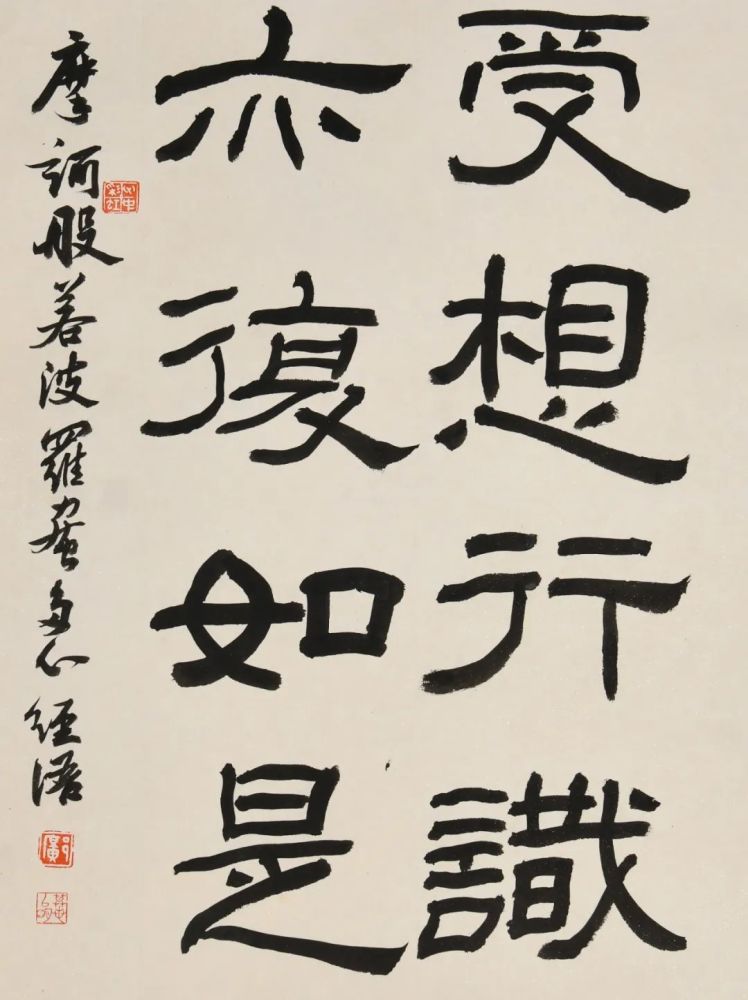 受想行識
亦復如是
摩訶般若波羅蜜多心經語